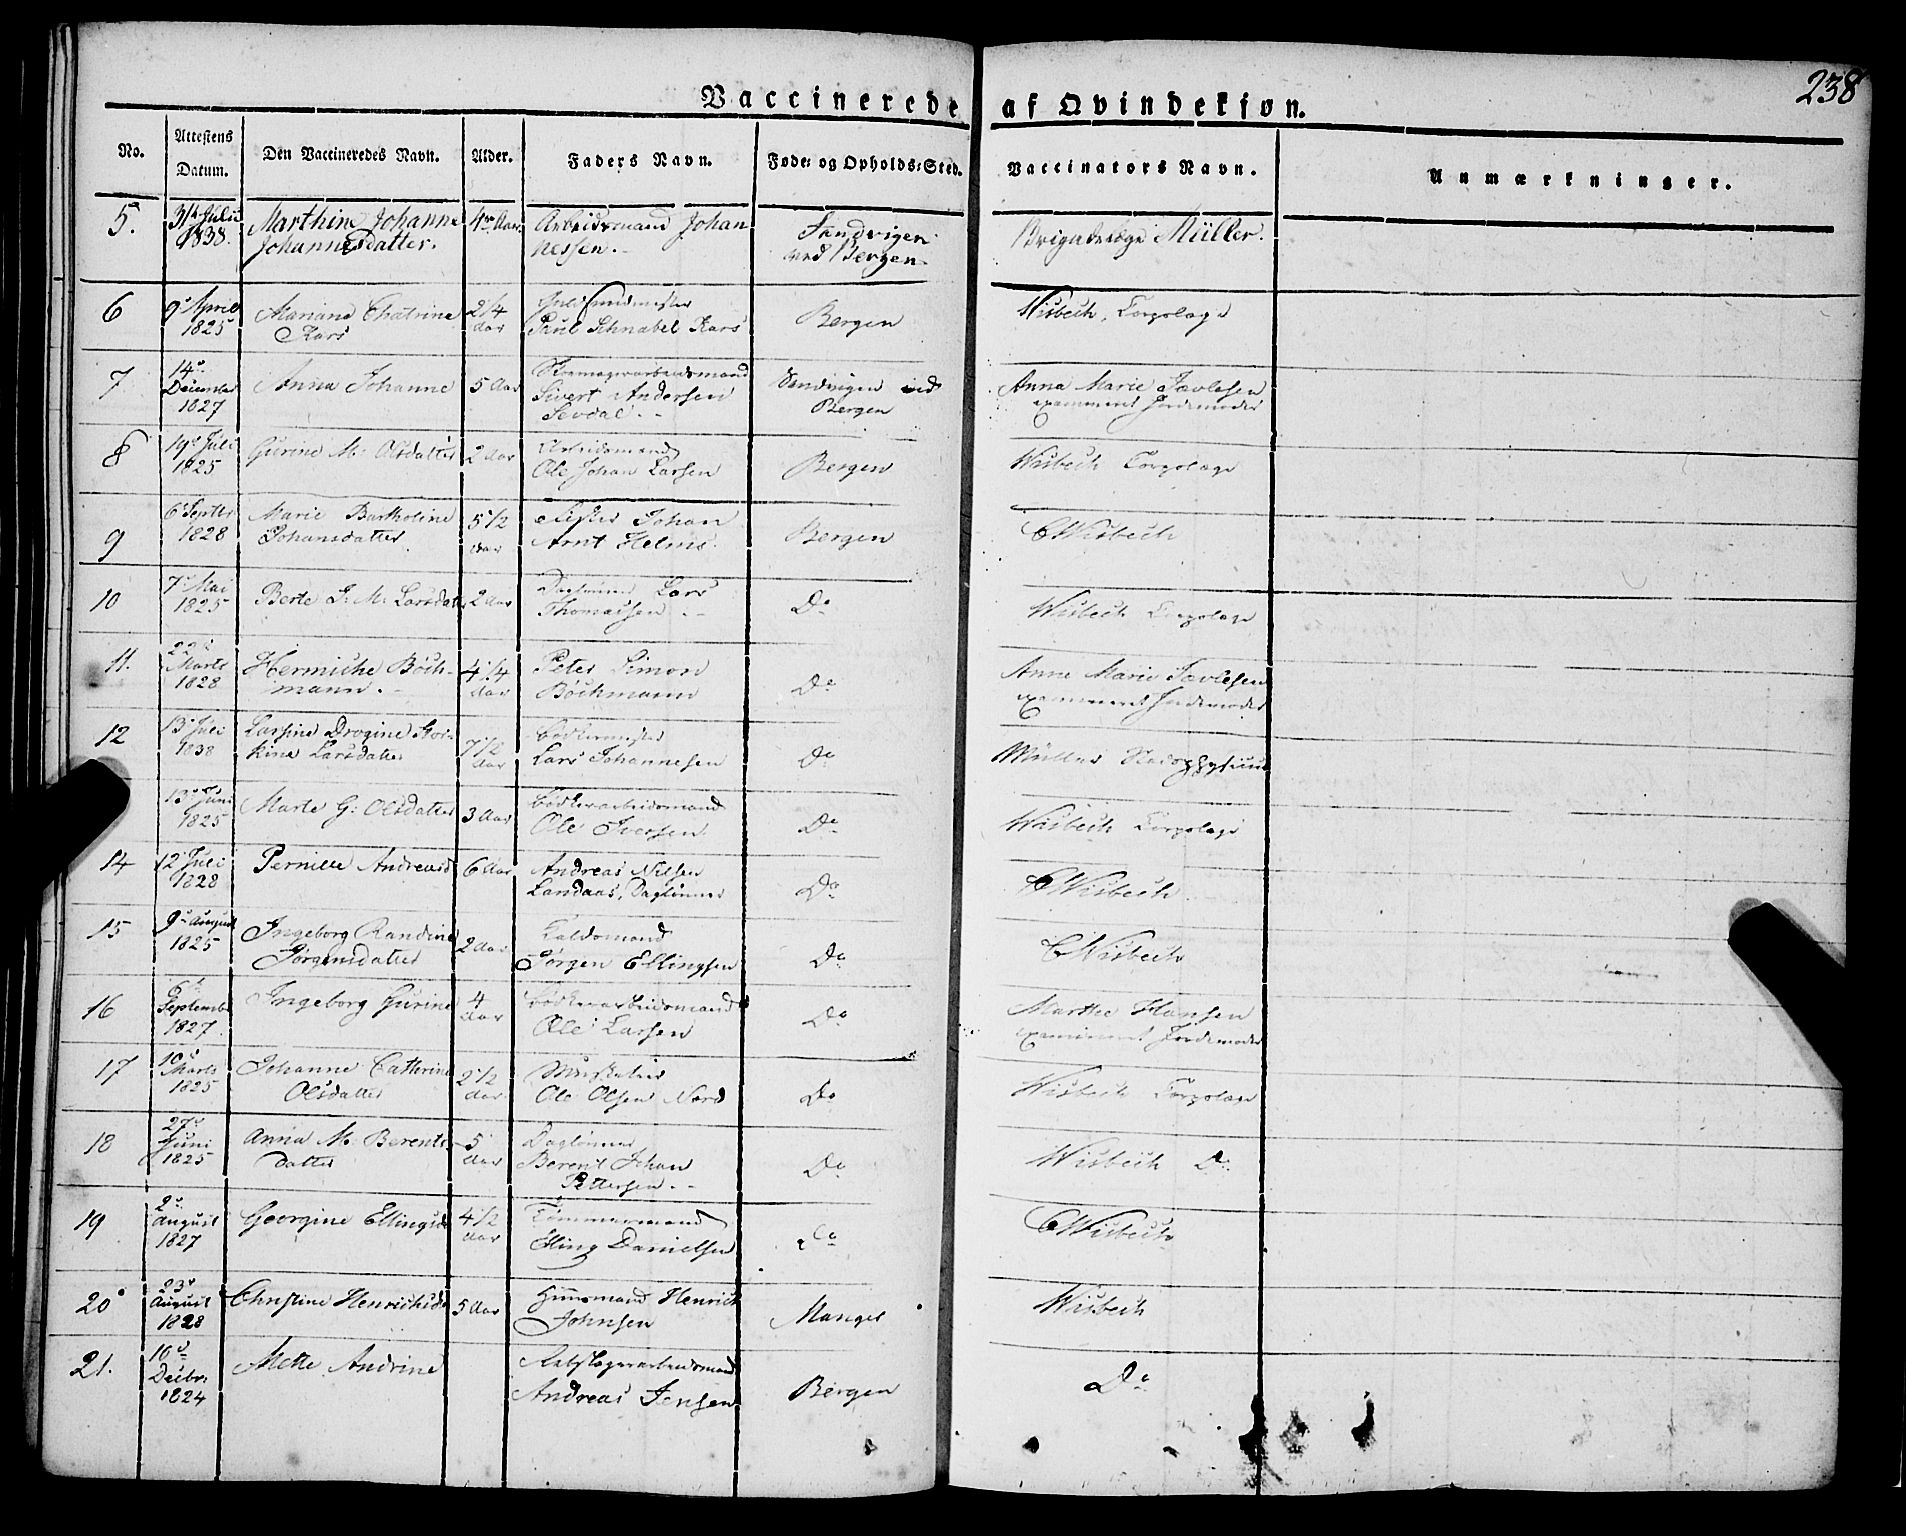 238
Vaccinerede af Qvindekjøn.
No. Attestens Datum. Den Vaccineredes Navn. Alder. Faders Navn. Føde- og Opholds-Sted. Vaccinators Navn. Anmærkninger.
5. 31te Juli 1838. Marthine Johanne Johannesdatter. 4re Aar Arbeidsmand Johannessen. Sandvigen ved Bergen Brigadelæge Müller.
6 9de April 1825 Mariane Chatrine Kars 2 1/4 Aar Paul Schnabel Kars Bergen Wisbech, Corpslæge
7 14de December 1827 Anna Johanne 5 Aar Sivert Andersen Sevdal Sandvigen ved Bergen Anna Marie examineret Jordemoder
8 19de Juli 1825 Gurine M: Olsdatter 2 Aar Arbeidsmand Ole Johan Larsen Bergen Wisbech Corpslæge
9 6te Septbr 1828 Marie Bartholine Johansdatter 5 1/2 Aar Johan Arnt Helms. Bergen CWisbech
10 7de Mai 1825 Berte J: M: Larsdatter 2 Aar Daglønner Lars Thomassen Do Wisbech Corpslæge
11. 22de Marts 1828 Bøchmann. 4 1/4 Aar Peter Simon Bøchmann Do Anne Marie examineret Jordemoder
12 13de Juli 1838 Larsine Larsdatter 7 1/2 Aar Bødkermester Lars Johannesen Do Müller
13de Juni 1825 Marte G: Olsdatter 3 Aar Bødkerarbeidsmand Ole Iversen Do Wisbech Corpslæge
14 12 Juli 1828 Pernille Andreasd 6 Aar Andreas Nilsen Landaas, Daglønner Do CWisbech
15 9de August 1825 Ingeborg Randine Jørgensdatter 2 Aar Jørgen Ellingsen Do CWisbech
16 6te September 1827 Ingeborg Gurine 4 Aar Bødkerarbeidsmand Ole Larsen Do Marthe Hansen examineret Jordemoder
17 10de Marts 1825 Johanne Cathrine Olsdatter 2 1/2 Aar Ole Olsen Nord Do Wisbech Corpslæge
18 27de Juni 1825 Anna M: Berentsdatter 5 Aar Daglønner Berent Johan Pettersen Do Wisbech Do
19 2de August 1827 Georgine Ellingsd 4 1/2 Aar Tømmermand Elling Danielsen Do CWisbech
20 23de August 1828 Christine Henrichsd 5 Aar Huusmand Henrich Johnsen Manger Wisbech
21. 16de Decbr 1824 Mette Andrine Andreas Jensen Bergen Do